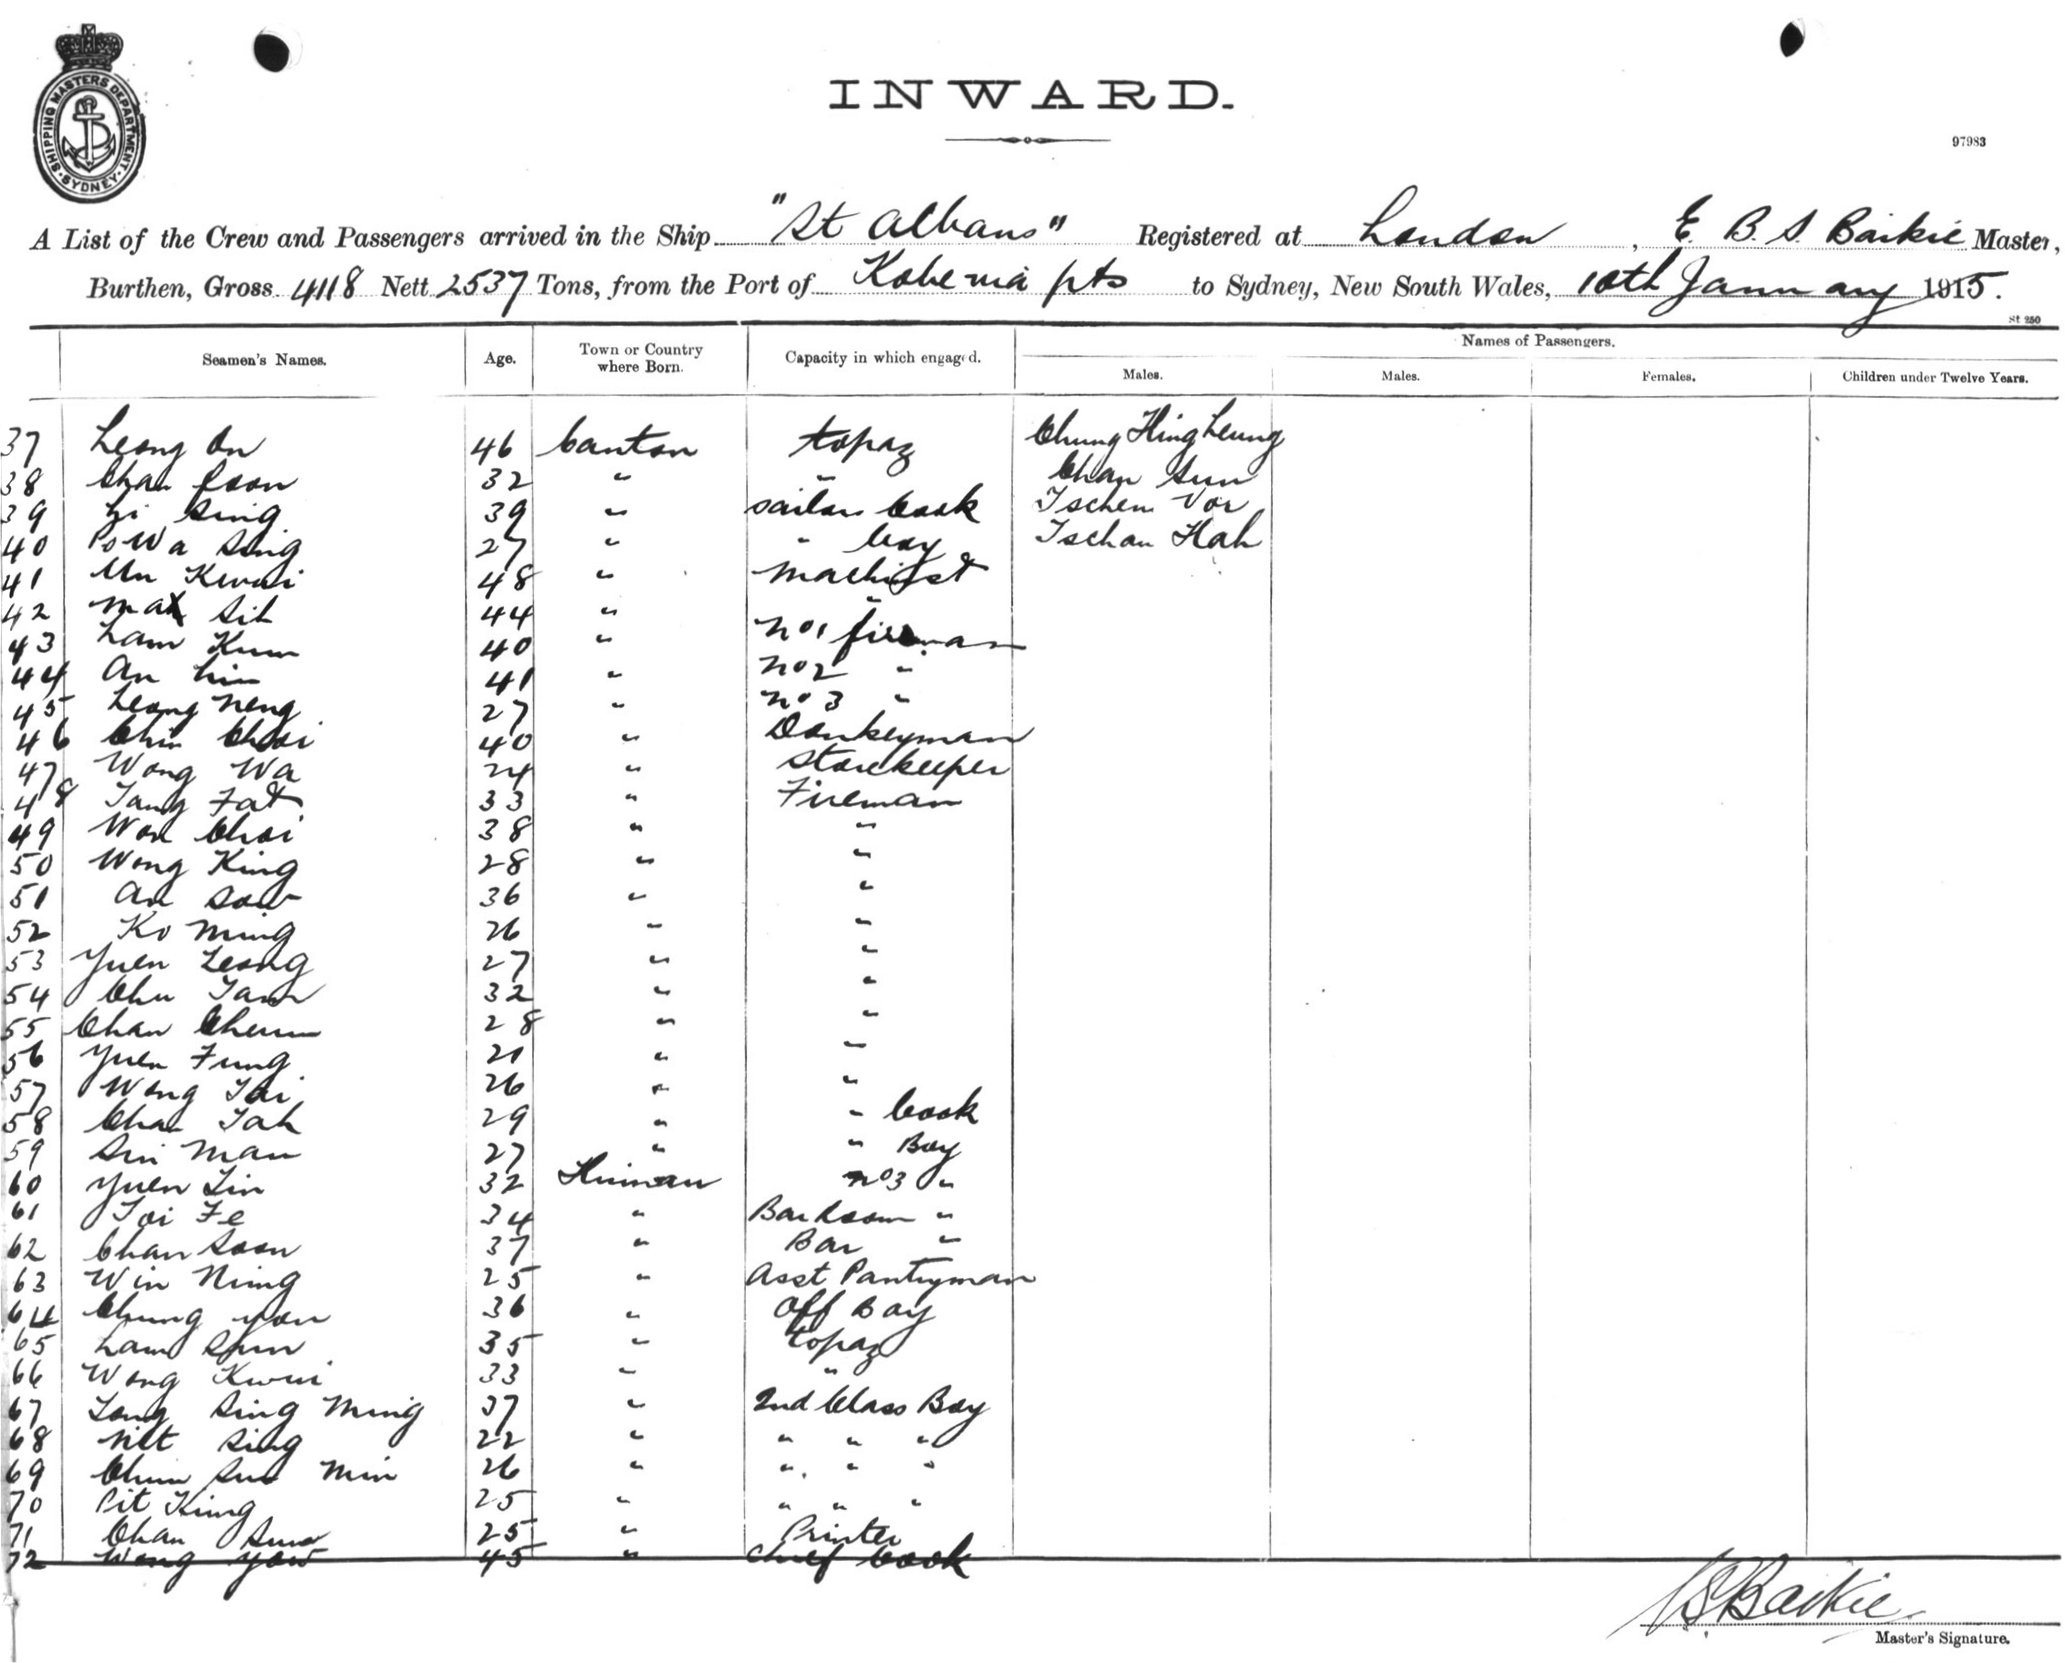 SHIPPING MASTERS DEPARTMENT. SYDNEY.
INWARD.
97983
A List of the Crew and Passengers arrived in the Ship "St Albans" Registered at London, E. B. S. Baikie Master,
Burthen, Gross 4118 Nett 2537 Tons, from the Port of Kobe via pts to Sydney, New South Wales, 10th January 1915.
St 250
Seamen's Names. Age. Town or Country where Born. Capacity in which engaged. Names of Passengers.
Males. Males. Females. Children under Twelve Years.
37 Leong On 46 Canton topaz Chung Hing Leung
38 Chan Soon 32 " " Chan Sun
39 Li Sing 39 " sailors Cook Tschen Voi
40 Po Wa Sing 27 " " boy Tschan Hah
41 Un Kwai 48 " Machinst
42 Mak Sit 44 " "
43 Lam Kum 40 " No 1 fireman
44 An Lim 41 " No 2 "
45 Leong Neng 27 " No 3 "
46 Chin Choi 40 " Donkeyman
47 Wong Wa 24 " Storekeeper
48 Tang Fat 33 " Fireman
49 Won Choi 38 " "
50 Wong King 28 " "
51 An Sow 36 " "
52 Ko Ming 26 " "
53 Yuen Leong 27 " "
54 Chu Tam 32 " "
55 Chan Cheum 28 " "
56 Yuen Fung 21 " "
57 Wong Tai 26 " "
58 Chan Tah 29 " " Cook
59 Sin Man 27 " " Boy
60 Yuen Lin 32 No 3 "
61 Toi Fe 34 " Bar Room "
62 Chan Soon 37 " Bar "
63 Win Ning 25 " Asst Pantryman
64 Chung Yon 36 " Off Boy
65 Lam Shun 35 " topaz
66 Wong Kwui 33 " "
67 Tong Sing Ming 37 " 2nd Class Boy
68 Sing 22 " " " "
69 Chun Sun Min 26 " " " "
70 Pit King 25 " " " "
71 Chan 25 " Printer
72 Wong Yow 45 " Chief Cook
Baikie
Master's Signature.